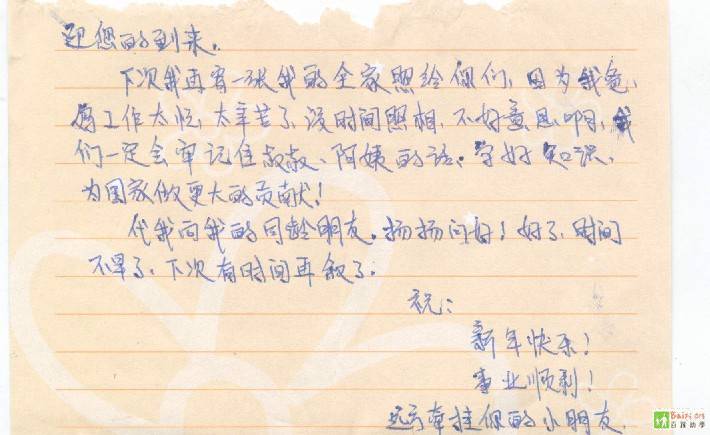 迎您的到来。
下次我再寄一张我的全家照给你们,因为我爸、
妈工作太忙,太辛苦了,没时间照相,不好意思啊,我
们一定会牢记住叔叔、阿姨的话。学好知识,
为国家做更大的贡献!
代我向我的同龄朋友。扬扬问好!好了,时间
不早了,下次有时间再叙了。
祝:
新年快乐!
事业顺利!
远方牵挂你的小朋友
Baizi.cn
百孩助学